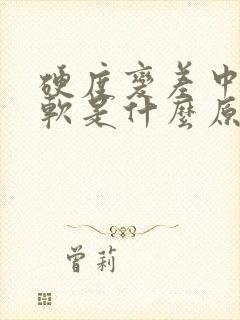 硬度變差中
軟是什麼原
曾莉